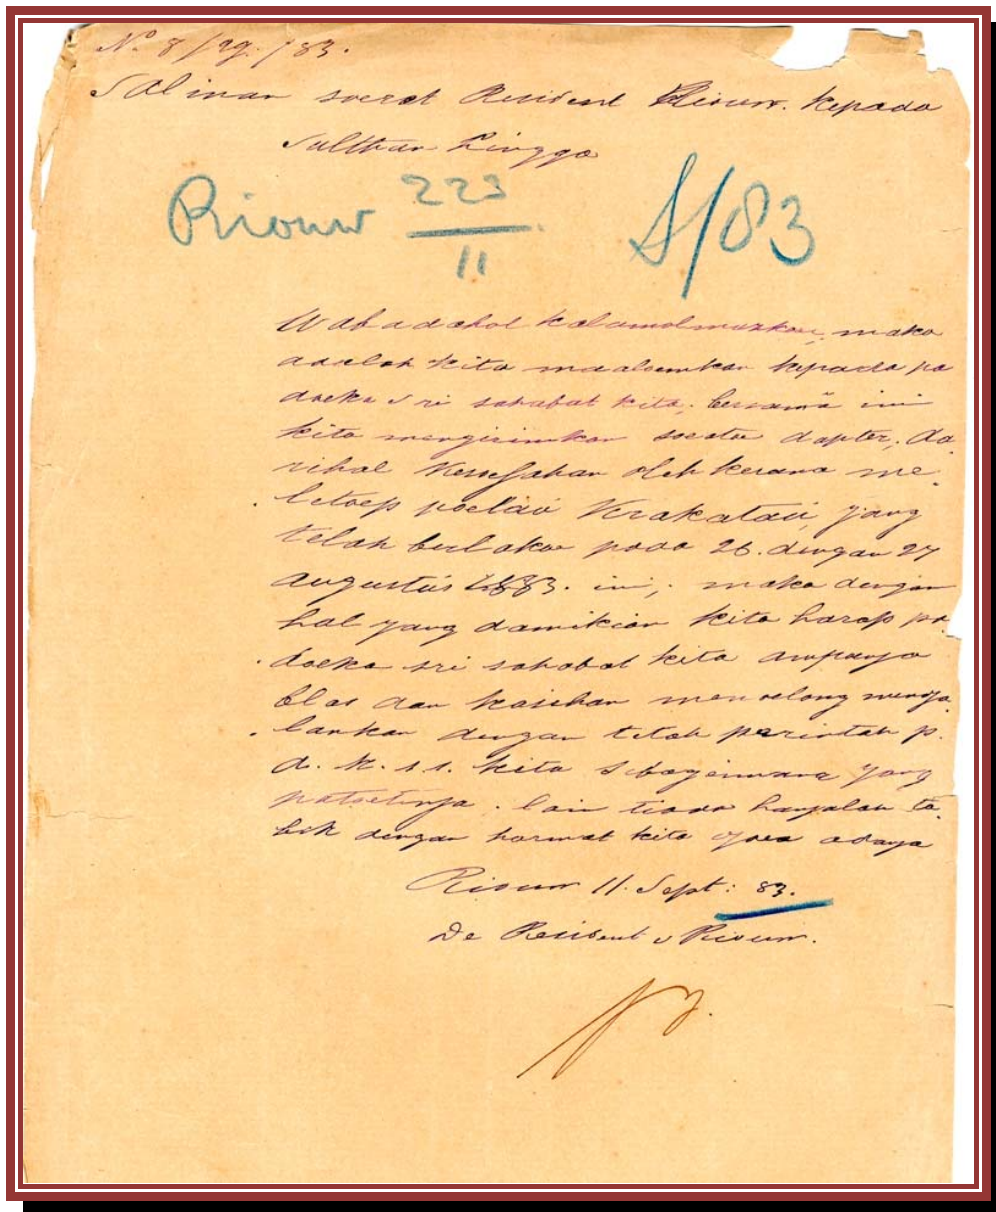 No. 8/29./83.
Salinan soerat Resident Riouw. kepada
Sulthan Lingga
Riouw 223/11 S/83
Wabadahol kalamolmazkur, maka
adalah kita maaloemkan kepada pa
doeka sri sahabat kita, bersama ini
kita mengirimkan soeatu dapter, da
rihal Kesoesahan oleh kerana me
letoep poelau Krakatau, yang
telah berlakoe pada 26. dengan 27
augustus 1883. ini, maka dengan
hal yang damikian kita harap pa
doeka sri sahabat kita ampunja
blas dan kasihan menoelong menja
lankan dengan titah perintah p.
d. k. s. s. kita sebagimana yang
patoetnja. lain tiada hanjalah ta
bik dengan hormat kita djoea adanja
Riouw 11. Sept: 83.
De Resident v Riouw.